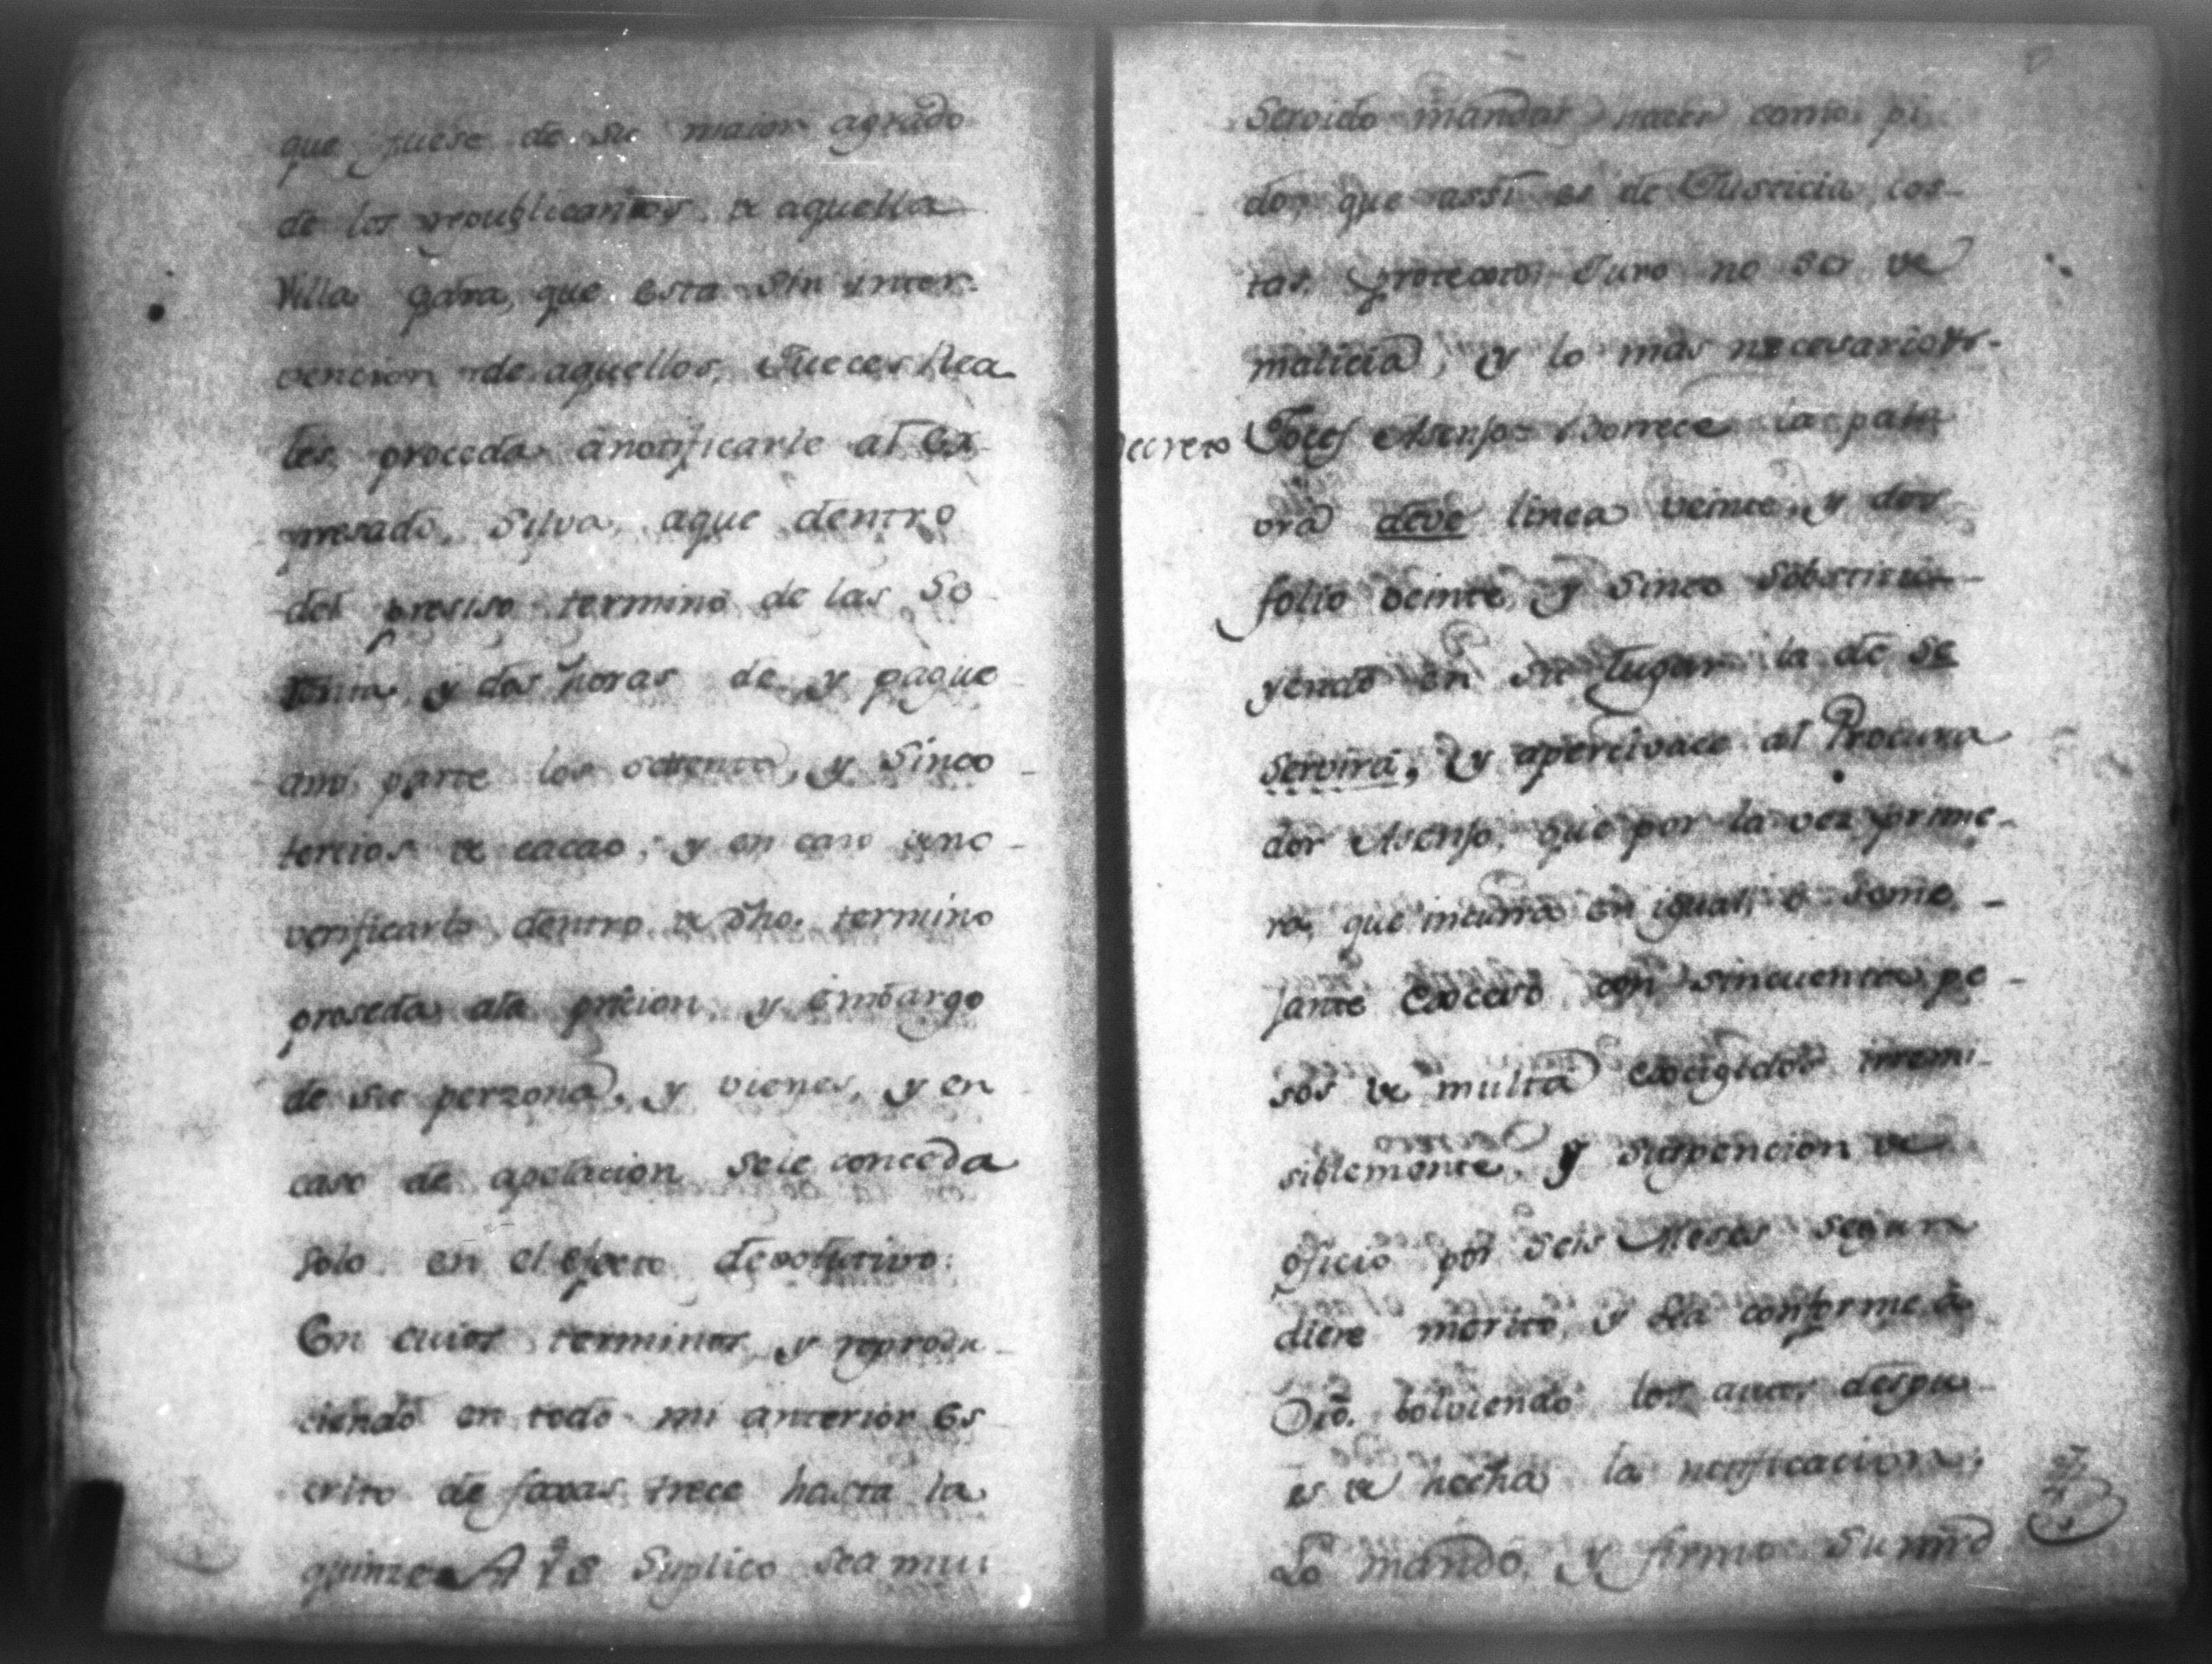 que fuese de su maior agrado
de los republicanos de aquella
Villa para, que esta sin inter-
vencion de aquellos, Jueces Rea
les, proceda anotificarle al Ex
presado, Silva, aque dentro
del presiso termino de las Se
tenta, y dos horas de, y pague
ami parte los setenta, y Sinco
tercios de cacao, y en caso deno
verificarlo dentro de dho. termino
proseda ala pricion, y embargo
de su perzona, y vienes, y en
caso de apelacion sele conceda
solo en el efecto devolutivo.
En cuios terminos, y reprodu
ciendo en todo mi anterior Es
crito de foxas trece hasta la
quince A V S Suplico sea mui
Servido mandar hacer como pi
do, que assi es de Justicia, cos-
tas protexto, Juro no ser de
malicia, y lo mas necesario
Decreto Josef Asenjo = borrece la pala
vra deve linea veinte, y dos
folio veinte, y Sinco sobstitu
yendo en su lugar la de se
servirá, y apercivace al Procura
dor Asenjo, que por la vez prime-
ra, que incurra en igual, o seme-
jante exceso con sincuenta pe-
sos de multa exsigidos irremi-
siblemente, y suspencion de
oficio por seis Meses segun
diere merito, y sea conforme á
Dro. bolviendo los autos despu
es de hecha la notificacion;
Lo mandó, y firmó Su mrd